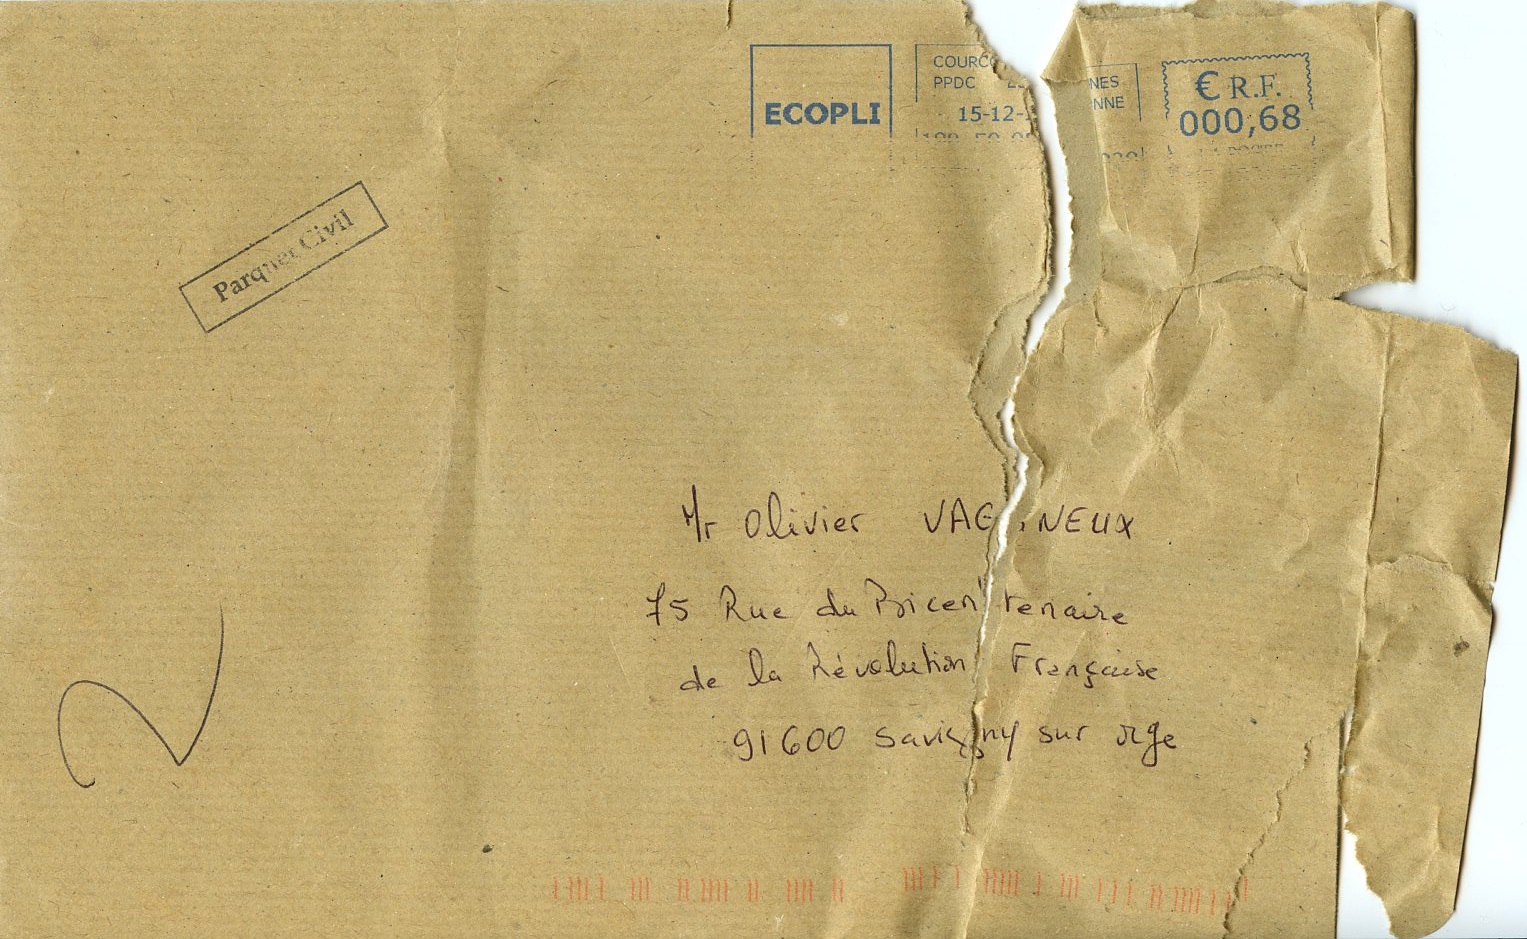 ECOPLI
PPDC
15-12-
€ R.F.
000,68
Parquet Civil
Mr Olivier VAGNEUX
75 Rue du Bicentenaire
de la Révolution Française
91600 Savigny sur orge
2